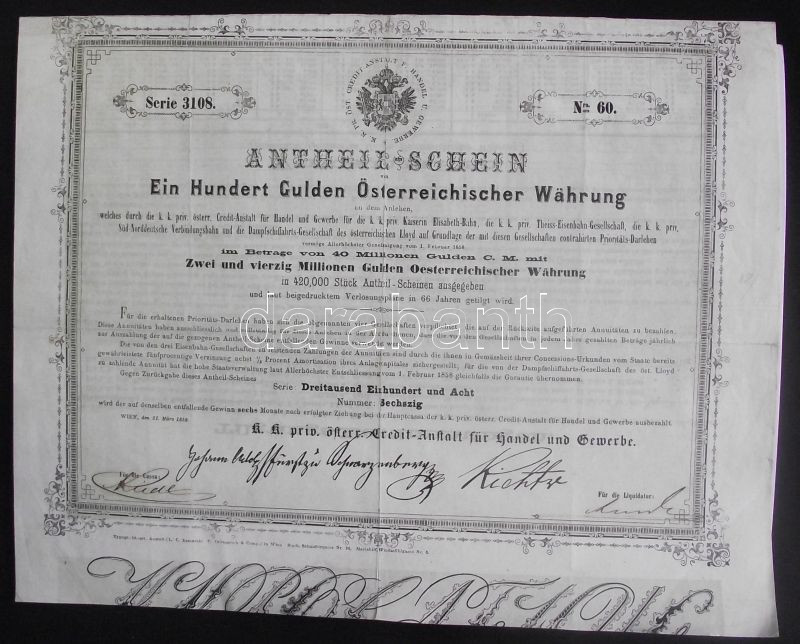 K. K. PR. ÖST. CREDIT ANSTALT F. HANDEL U. GEWERBE
Serie 3108.
Nro. 60.
ANTHEIL-SCHEIN
von
Ein Hundert Gulden Österreichischer Währung
zu dem Anlehen,
welches durch die k. k. priv. österr. Credit-Anstalt für Handel und Gewerbe für die k. k. priv. Kaiserin Elisabeth-Bahn, die k. k. priv. Theiss-Eisenbahn-Gesellschaft, die k. k. priv.
Süd-Norddeutsche Verbindungsbahn und die Dampfschiffahrts-Gesellschaft des österreichischen Lloyd auf Grundlage der mit diesen Gesellschaften contrahirten Prioritäts-Darlehen
vermöge Allerhöchster Genehmigung vom 1. Februar 1858
im Betrage von 40 Millionen Gulden C. M. mit
Zwei und vierzig Millionen Gulden Oesterreichischer Währung
in 420,000 Stück Antheil-Scheinen ausgegeben
und laut beigedrucktem Verlosungsplane in 66 Jahren getilgt wird.
Für die erhaltenen Prioritäts-Darlehen haben sich die obgenannten vier Gesellschaften verpflichtet, die auf der Rückseite aufgeführten Annuitäten zu bezahlen.
Diese Annuitäten haben ausschliesslich zur Bedeckung für das Anlehen zu dienen, zu welchem Ende die von den Gesellschaften in jedem Jahre gezahlten Beträge jährlich
zur Auszahlung der auf die gezogenen Antheil-Scheine entfallenden Gewinne verwendet werden.
Die von den drei Eisenbahn-Gesellschaften zu leistenden Zahlungen der Annuitäten sind durch die ihnen in Gemässheit ihrer Concessions-Urkunden vom Staate bereits
gewährleistete fünfprocentige Verzinsung nebst 1/5 Procent Amortisation ihres Anlagecapitales sichergestellt; für die von der Dampfschiffahrts-Gesellschaft des öst. Lloyd
zu zahlende Annuität hat die hohe Staatsverwaltung laut Allerhöchster Entschliessung vom 1. Februar 1858 gleichfalls die Garantie übernommen.
Gegen Zurückgabe dieses Antheil-Scheines
Serie: Dreitausend Einhundert und Acht
Nummer: Sechszig
wird der auf denselben entfallende Gewinn sechs Monate nach erfolgter Ziehung bei der Hauptcassa der k. k. priv. österr. Credit-Anstalt für Handel und Gewerbe ausbezahlt.
WIEN, den 31. März 1858
K. K. priv. österr. Credit-Anstalt für Handel und Gewerbe.
Für die Cassa:
Fürst zu Schwarzenberg
Richter
Für die Liquidatur:
darabanth